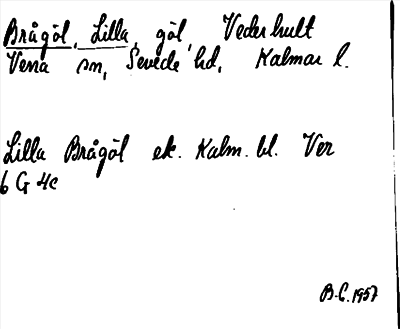 Brågöl, Lilla, göl, Vederhult
Vena sn, Sevede hd, Kalmar l.
Lilla Brågöl ek. Kalm. bl. Ver
6 G 4c
B-C. 1957